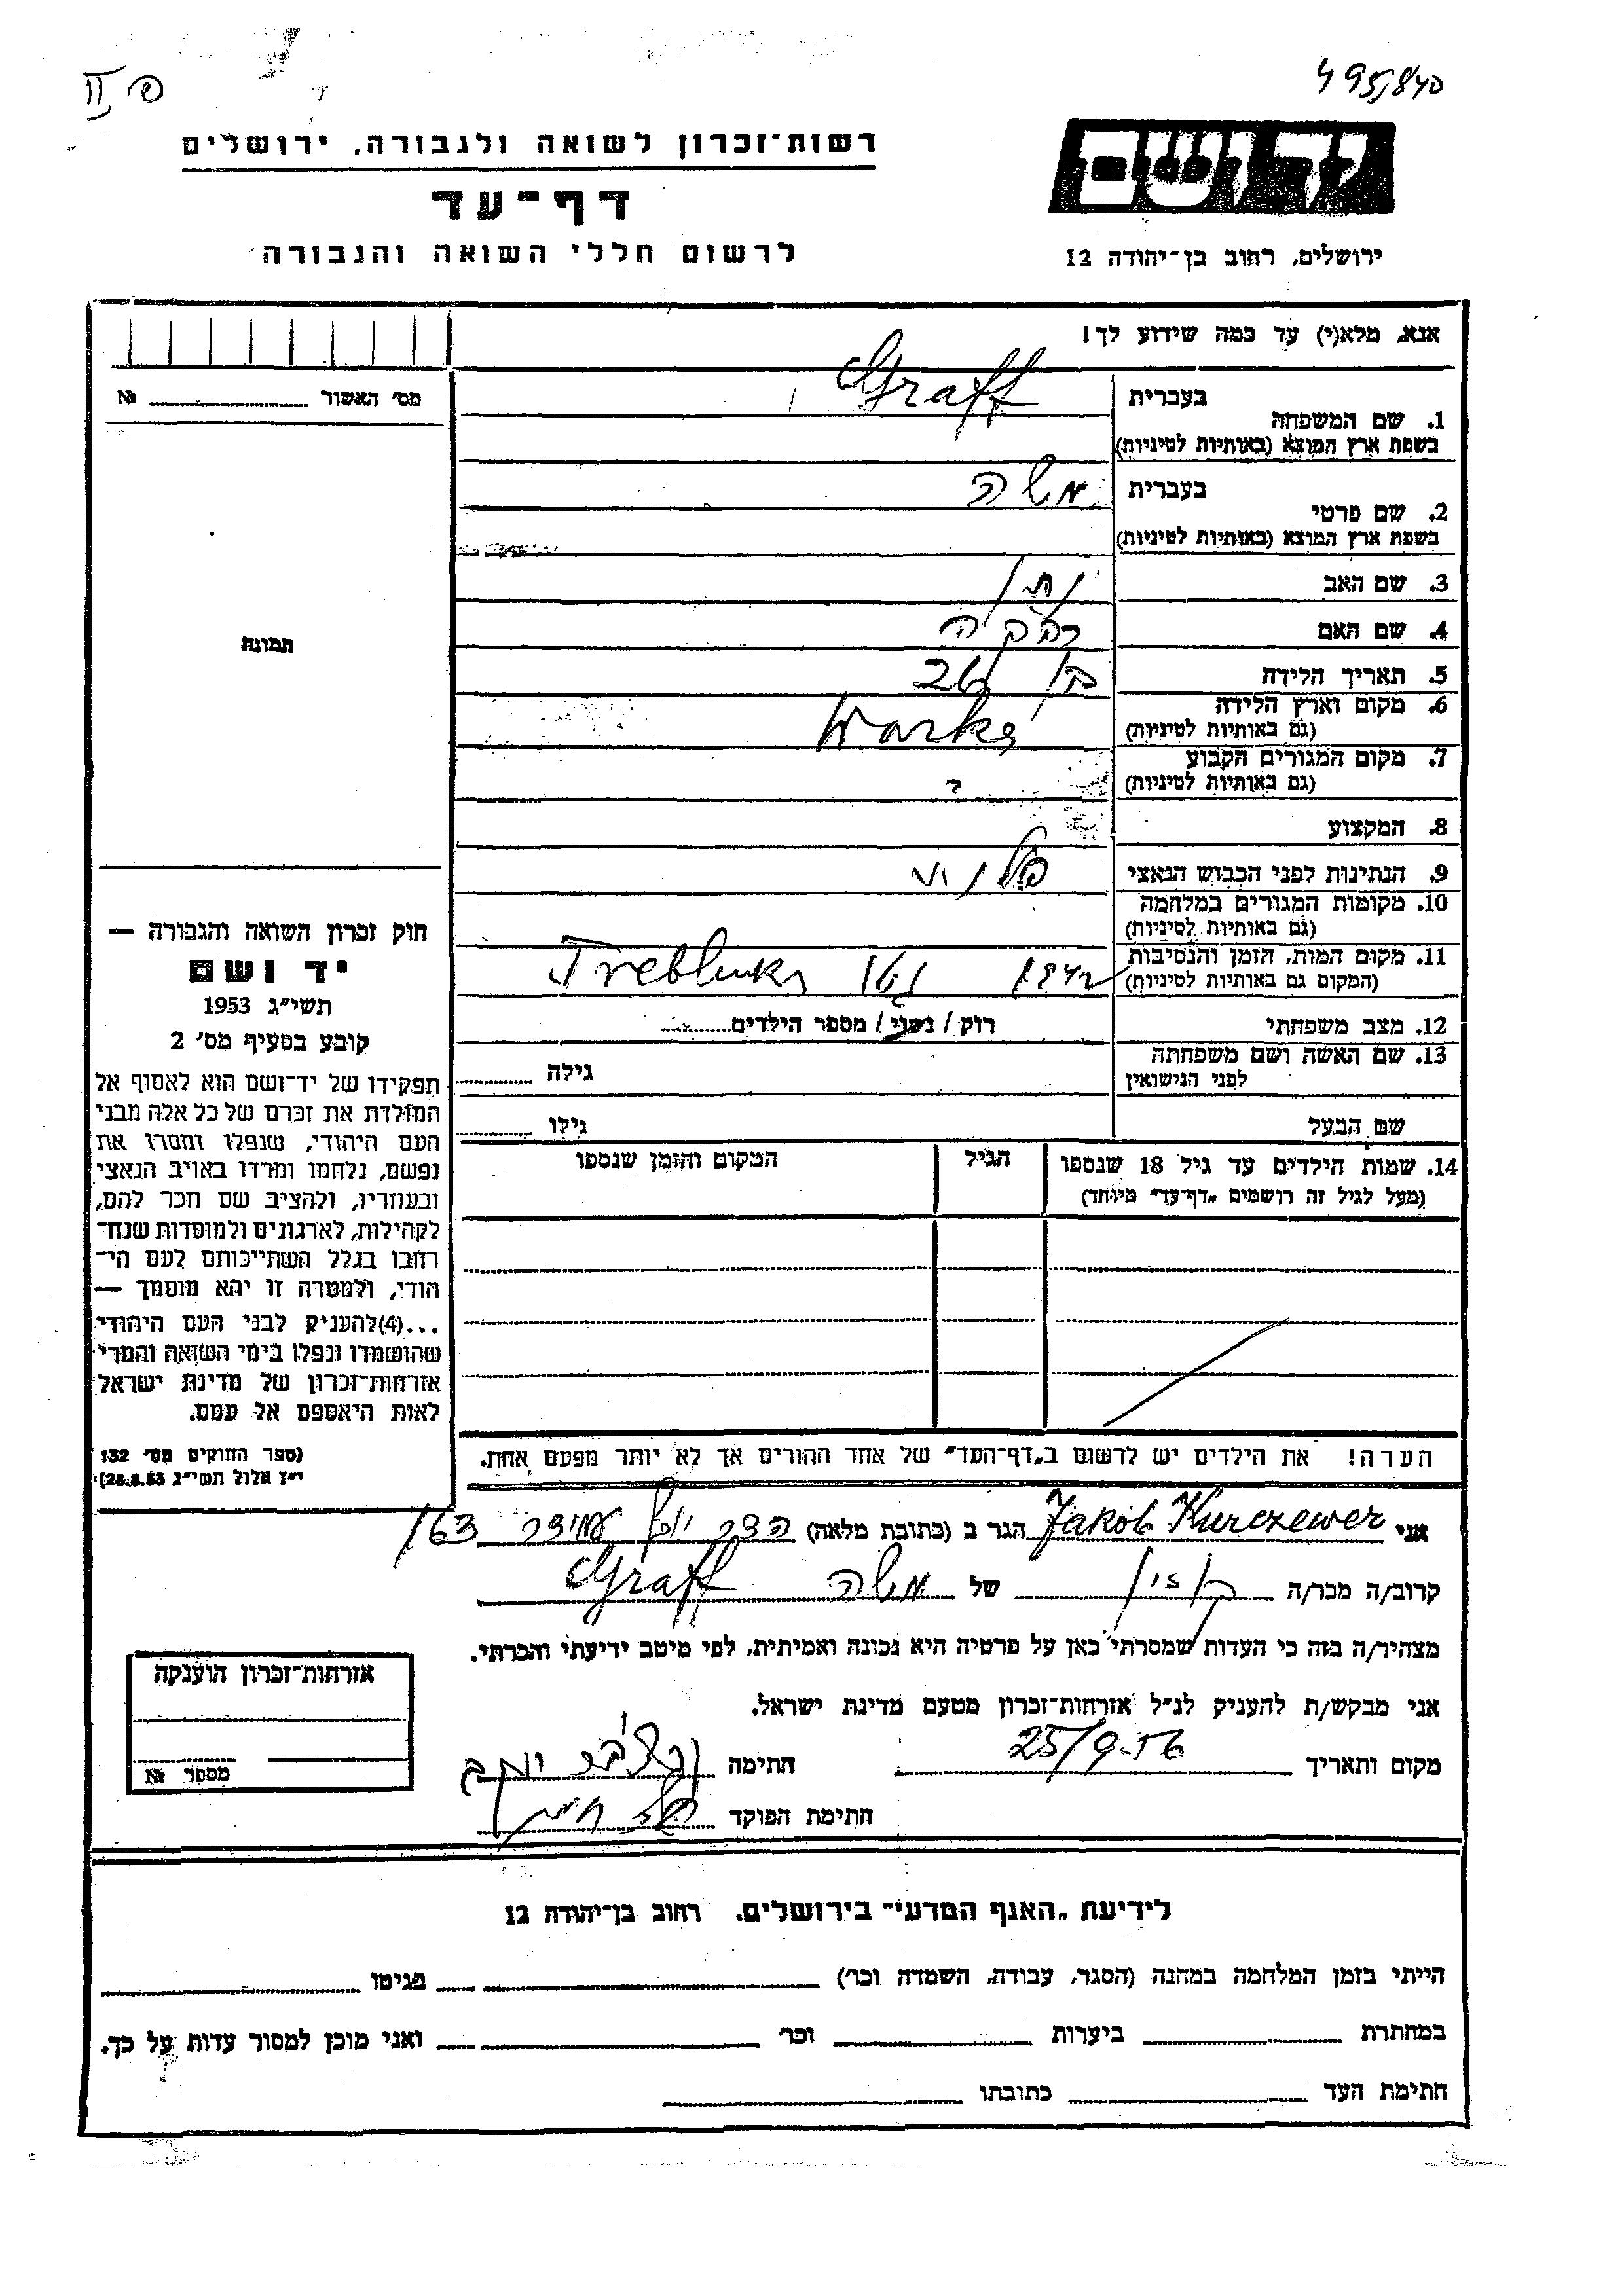 495,840
פ II
ידושם
ירושלים, רחוב בן־יהודה 12
רשות־זכרון לשואה ולגבורה, ירושלים
דף־עד
לרשום חללי השואה והגבורה
אנא, מלא(י) עד כמה שידוע לך!
מס' האשור №
תמונה
בעברית Graff
1. שם המשפחה
בשפת ארץ המוצא (באותיות לטיניות)
בעברית משה
2. שם פרטי
בשפת ארץ המוצא (באותיות לטיניות)
3. שם האב נתן
4. שם האם רבקה
5. תאריך הלידה בן 26
6. מקום וארץ הלידה
(גם באותיות לטיניות) Warka
7. מקום המגורים הקבוע
(גם באותיות לטיניות)
8. המקצוע
9. הנתינות לפני הכבוש הנאצי
10. מקומות המגורים במלחמה
(גם באותיות לטיניות)
11. מקום המות, הזמן והנסיבות
(המקום גם באותיות לטיניות) 1942 Treblinka
12. מצב משפחתי רוק / נשוי / מספר הילדים
13. שם האשה ושם משפחתה
לפני הנישואין גילה
שם הבעל גילו
14. שמות הילדים עד גיל 18 שנספו הגיל המקום והזמן שנספו
(מעל לגיל זה רושמים „דף־עד" מיוחד)
הערה! את הילדים יש לרשום ב„דף־העד" של אחד ההורים אך לא יותר מפעם אחת.
חוק זכרון השואה והגבורה —
יד ושם
תשי"ג 1953
קובע בסעיף מס' 2
תפקידו של יד־ושם הוא לאסוף אל
המולדת את זכרם של כל אלה מבני
העם היהודי, שנפלו ומסרו את
נפשם, נלחמו ומרדו באויב הנאצי
ובעוזריו, ולהציב שם וזכר להם,
לקהילות, לארגונים ולמוסדות שנח־
רחבו בגלל השתייכותם לעם הי־
הודי, ולמטרה זו יהא מוסמך —
...(4) להעניק לבני העם היהודי
שהושמדו ונפלו בימי השואה והמרי
אזרחות־זכרון של מדינת ישראל
לאות היאספם אל עמם.
(ספר החוקים מס' 132
י"ז אלול תשי"ג 28.8.53)
אני Jakob Kurczewer הגר ב (כתובת מלאה) 163
קרוב/ה מכר/ה של משה Graff
מצהיר/ה בזה כי העדות שמסרתי כאן על פרטיה היא נכונה ואמיתית, לפי מיטב ידיעתי והכרתי.
אני מבקש/ת להעניק לנ"ל אזרחות־זכרון מטעם מדינת ישראל.
מקום ותאריך 25/9.56 חתימה
חתימת הפוקד
אזרחות־זכרון הוענקה
מספר №
לידיעת „האגף המדעי" בירושלים, רחוב בן־יהודה 12
הייתי בזמן המלחמה במחנה (הסגר, עבודה, השמדה וכר') בגיטו
במחתרת ביערות וכר' ואני מוכן למסור עדות על כך.
חתימת העד כתובתו